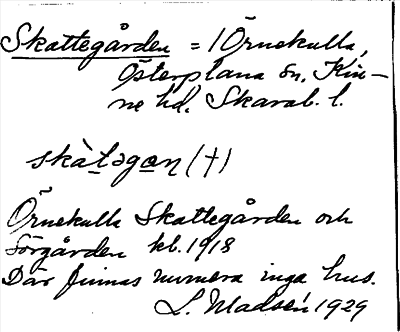 Skattegården = 1 Örnekulla,
Österplana sn, Kin-
ne hd. Skarab. l.
skàtəgan (†)
Örnekulla Skattegården och
Sörgården kb. 1918
Där finnas numera inga hus.
L. Madsén 1929